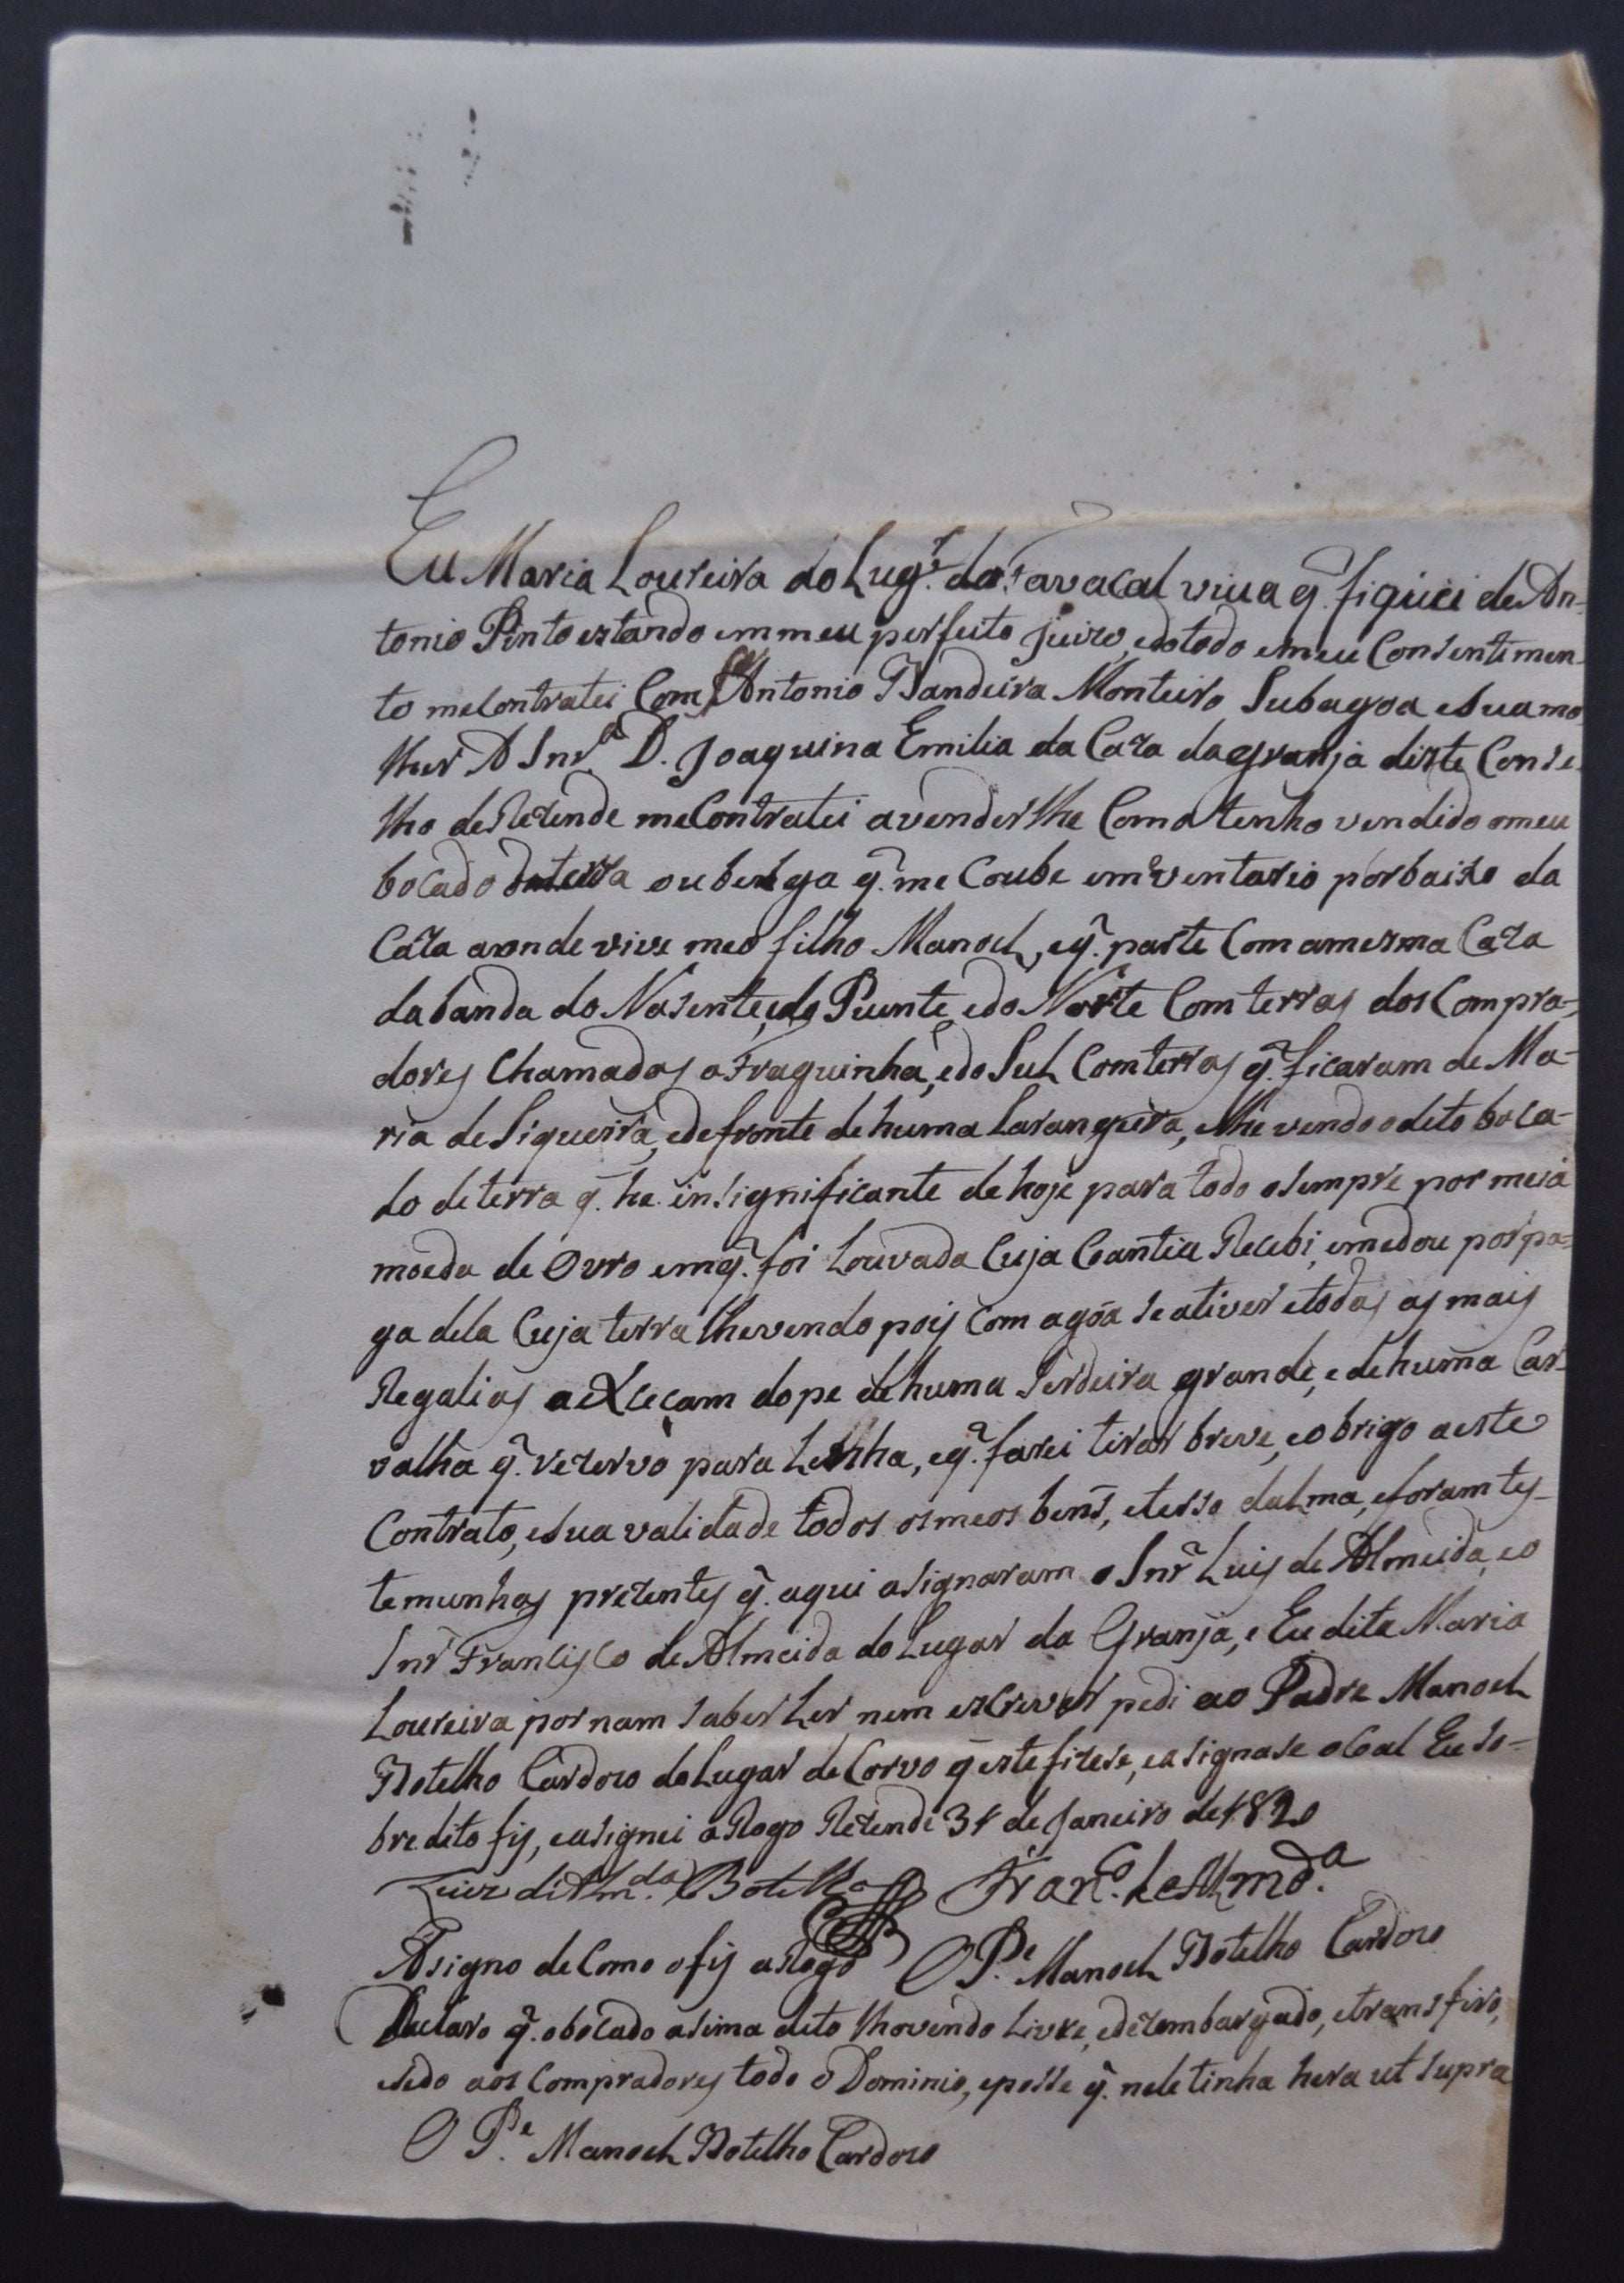 Eu Maria Loureira do Lug.r do Favacal viua q̃. fiquei de An-
tonio Pinto estando em meu perfeito juizo, e do todo e meu Consentimen-
to me Contratei Com Antonio Bandeira Monteiro Subagoa e sua mo
lher A Snr.ª D. Joaquina Emilia da Caza da granja deste Conse-
lho de Rezende me Contratei a vender lhe Como tenho vendido o meu
bocado de terra ou belga q̃. me Coube em inventario por baixo da
Caza aonde vive meo filho Manoel, e q̃. parte Com a mesma Caza
da banda do Nasente, e do Puente, e do Norte Com terras dos Compra-
dores Chamadas a Fraguinha, e do Sul Com terras q̃. ficaram de Ma-
ria de Siqueira, e defronte de huma Larangeira, e lhe vendo o dito boca-
do de terra q̃. he insignificante de hoje para todo o sempre por meia
moeda de Ouro em q̃. foi Louvada Cuja Coantia Recebi, e me dou por pa-
ga dela Cuja terra lhe vendo pois Com agoa se a tiver e todas as mais
Regalias a exLeçam do pe de huma Serdeira grande, e de huma Car-
valha q̃. rezervo para Lenha, e q̃. farei tirar breve, e obrigo a este
Contrato, e sua validade todos os meos bens, e terso da Lma, e foram tes-
temunhas prezentes q̃. aqui asignaram o Snr̃ Luis de Almeida, e o
Snr̃ Francisco de Almeida do Lugar da Granja, e Eu dita Maria
Loureira por nam saber Ler nem escrever pedi ao Padre Manoel
Botelho Cardozo do Lugar de Corvo q̃ este fizese, e asignase o Coal Eu so-
bre dito fis, e asignei a Rogo Rezende 31 de Janeiro de 1820
Luiz di Alm.da Botelho Fran.co de Almd.ª
Asigno de Como o fis a Rogo O P.e Manoel Botelho Cardozo
Declaro q̃. o bocado asima dito lho vendo Livre, e dezembargado, e transfiro,
e sedo aos Compradores todo o Dominio, e posse q̃. nele tinha hera ut supra
O P.e Manoel Botelho Cardozo